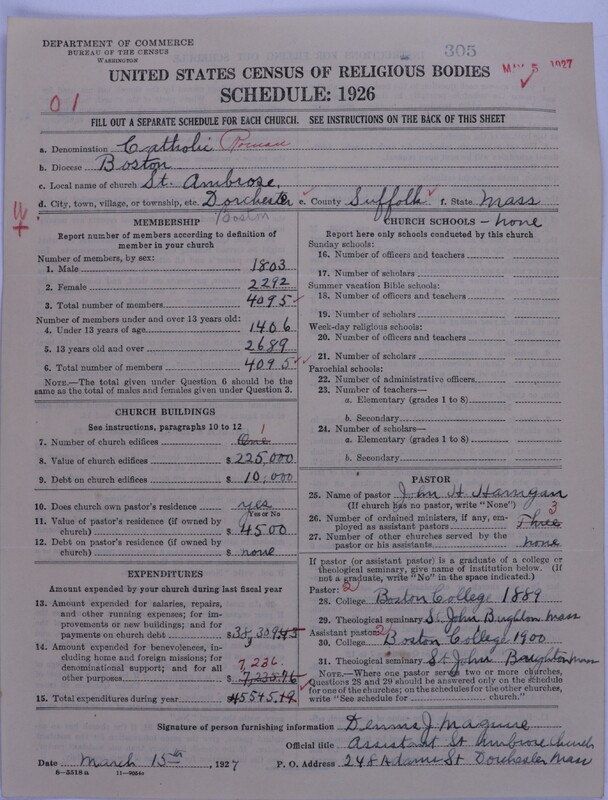 DEPARTMENT OF COMMERCE
BUREAU OF THE CENSUS
WASHINGTON
305
MAY 5 1927
UNITED STATES CENSUS OF RELIGIOUS BODIES
SCHEDULE: 1926
01
FILL OUT A SEPARATE SCHEDULE FOR EACH CHURCH. SEE INSTRUCTIONS ON THE BACK OF THIS SHEET
a. Denomination Catholic Roman
b. Diocese Boston
c. Local name of church St. Ambrose.
d. City, town, village, or township, etc. Dorchester e. County Suffolk f. State Mass
Boston
MEMBERSHIP
Report number of members according to definition of member in your church
Number of members, by sex:
1. Male 1803
2. Female 2292
3. Total number of members 4095
Number of members under and over 13 years old:
4. Under 13 years of age 1406
5. 13 years old and over 2689
6. Total number of members 4095
NOTE.—The total given under Question 6 should be the same as the total of males and females given under Question 3.
CHURCH BUILDINGS
See instructions, paragraphs 10 to 12
7. Number of church edifices One 1
8. Value of church edifices $ 225,000
9. Debt on church edifices $ 10,000
10. Does church own pastor's residence yes
Yes or No
11. Value of pastor's residence (if owned by church) $ 4500
12. Debt on pastor's residence (if owned by church) $ none
EXPENDITURES
Amount expended by your church during last fiscal year
13. Amount expended for salaries, repairs, and other running expenses; for improvements or new buildings; and for payments on church debt $ 38,309
14. Amount expended for benevolences, including home and foreign missions; for denominational support; and for all other purposes $ 7,236.
15. Total expenditures during year $45545.19
CHURCH SCHOOLS – none
Report here only schools conducted by this church
Sunday schools:
16. Number of officers and teachers
17. Number of scholars
Summer vacation Bible schools:
18. Number of officers and teachers
19. Number of scholars
Week-day religious schools:
20. Number of officers and teachers
21. Number of scholars
Parochial schools:
22. Number of administrative officers
23. Number of teachers—
a. Elementary (grades 1 to 8)
b. Secondary
24. Number of scholars—
a. Elementary (grades 1 to 8)
b. Secondary
PASTOR
25. Name of pastor John H Harrigan
(If church has no pastor, write "None")
26. Number of ordained ministers, if any, employed as assistant pastors Three 3
27. Number of other churches served by the pastor or his assistants none
If pastor (or assistant pastor) is a graduate of a college or theological seminary, give name of institution below. (If not a graduate, write "No" in the space indicated.)
Pastor: 2
28. College Boston College 1889
29. Theological seminary St. John Brighton Mass
Assistant pastor: 2
30. College Boston College 1900
31. Theological seminary St John Brighton Mass
NOTE.—Where one pastor served two or more churches, Questions 28 and 29 should be answered only on the schedule for one of the churches; on the schedules for the other churches, write "See schedule for church."
Signature of person furnishing information Dennis J Maguire
Official title Assistant St Ambrose Church
Date March 15th, 1927 P. O. Address 248 Adams St Dorchester Mass